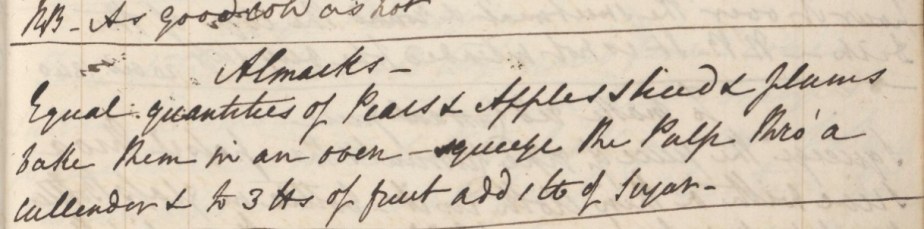 NB - As good cold as hot
Almacks -
Equal quantities of Pears & Apples sliced & plums
bake them in an oven - squeeze the Pulp thro' a
cullender & to 3 lbs of fruit add 1 lb of Sugar -